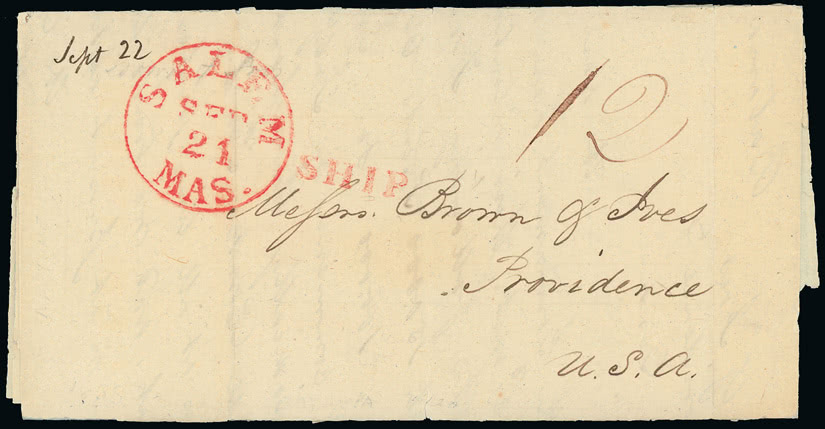 Sept 22
SALEM
SEP
21
MAS.
SHIP
12
Messrs. Brown & Ives
Providence
U.S.A.